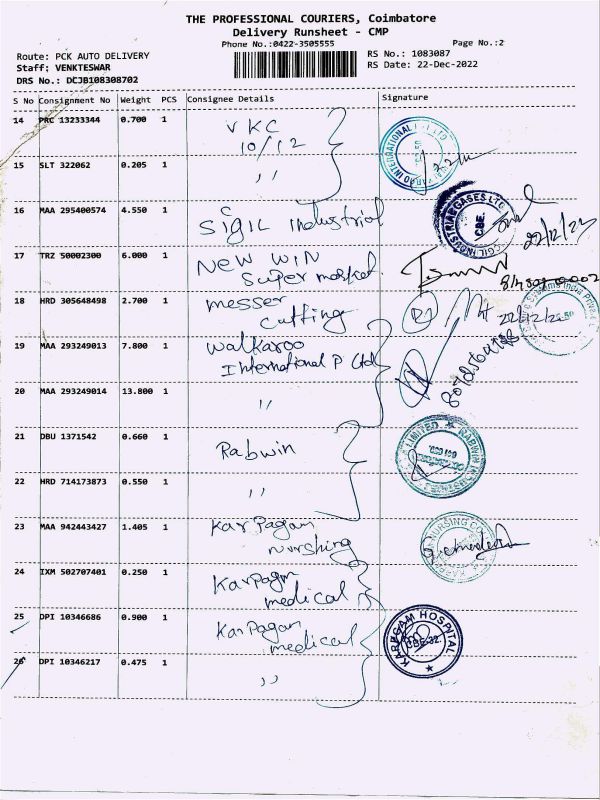 THE PROFESSIONAL COURIERS, Coimbatore
Delivery Runsheet - CMP
Phone No.:0422-3505555
Page No.:2
Route: PCK AUTO DELIVERY
RS No.: 1083087
Staff: VENKTESWAR
RS Date: 22-Dec-2022
DRS No.: DCJB108308702
S No Consignment No Weight PCS Consignee Details Signature
14 PRC 13233344 0.700 1 VKC
10/12
15 SLT 322062 0.205 1 ,,
16 MAA 295400574 4.550 1 SIGIL Industrial
22/12/22
17 TRZ 50002300 6.000 1 NEW WIN
Super market
18 HRD 305648498 2.700 1 messer
cutting
22/12/22
19 MAA 293249013 7.800 1 Walkaroo
International P Ltd
20 MAA 293249014 13.800 1 ,,
21 DBU 1371542 0.660 1 Rabwin
LIMITED ★ RABWIN
22 HRD 714173873 0.550 1 ,,
23 MAA 942443427 1.405 1 Karpagam
nurshing
NURSING CO
24 IXM 502707401 0.250 1 Karpagm
medical
25 DPI 10346686 0.900 1 Karpagam
medical
KARPAGAM HOSPITAL
CBE-32.
26 DPI 10346217 0.475 1 ,,